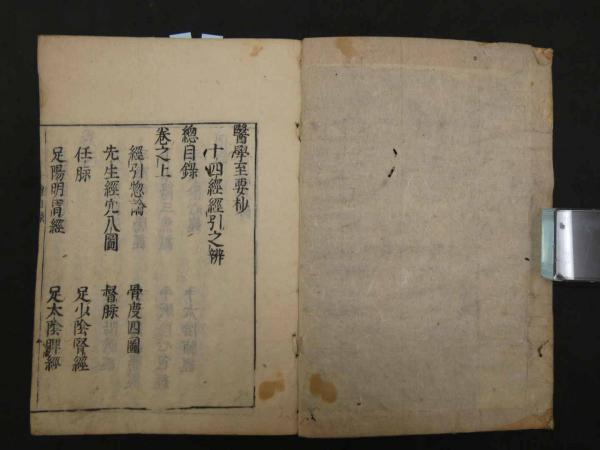 醫學至要抄
總目錄
十四經經引之辨
卷之上
經引惣論
骨度四圖
先生經穴八圖
督脉
任脉
足少陰腎經
足陽明胃經
足太陰脾經